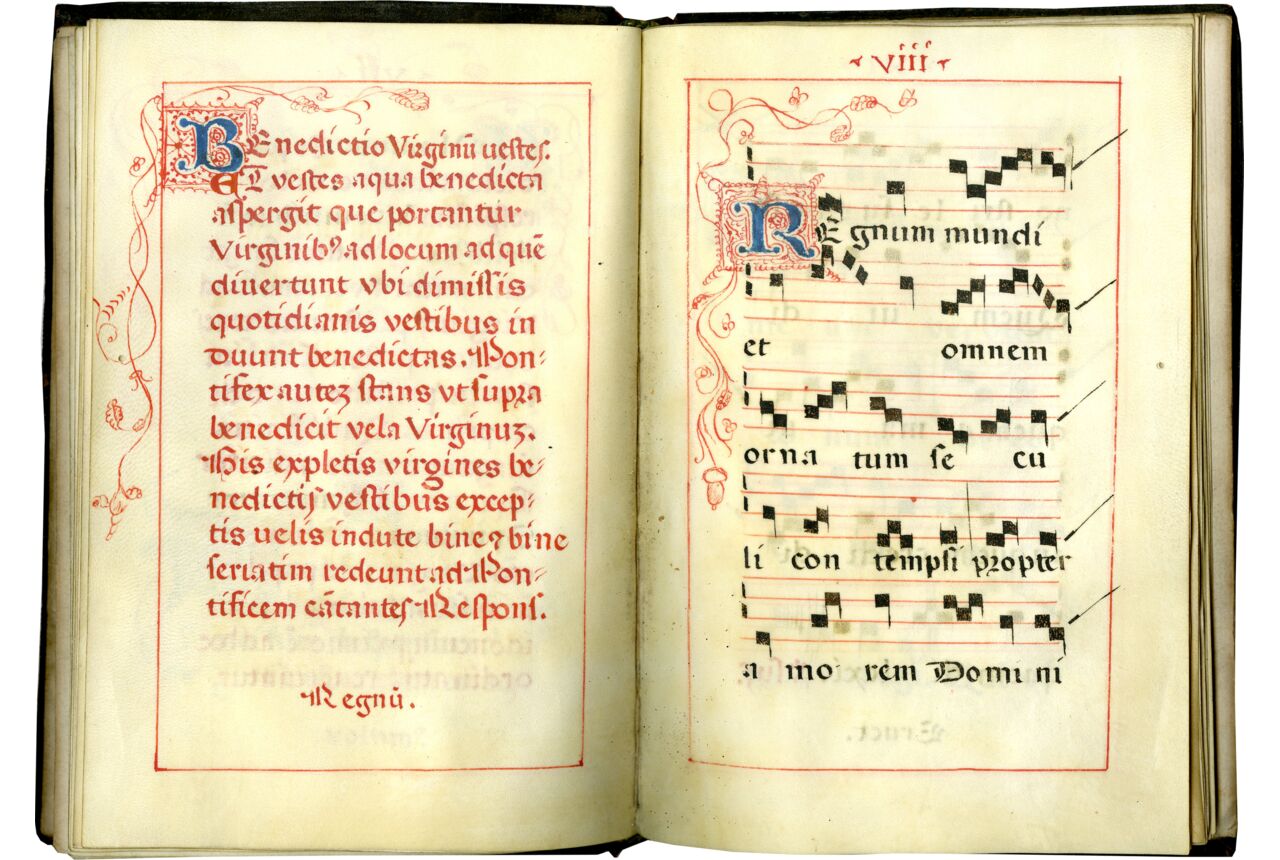 BEnedictio Virginū vestes.
ET vestes aqua benedicta
aspergit que portantur
Virginibꝰ ad locum ad quē
diuertunt vbi dimissis
quotidianis vestibus in
duunt benedictas. Pon-
tifex auteꝫ stans vt supra
benedicit vela Virginuꝫ.
His expletis virgines be-
nedictis vestibus excep-
tis uelis indute bine ⁊ bine
seriatim redeunt ad Pon-
tificem cātantes Respons.
Regnū.
viii
REgnum mundi
et omnem
orna tum se cu
li con tempsi propter
a mo rem Domini